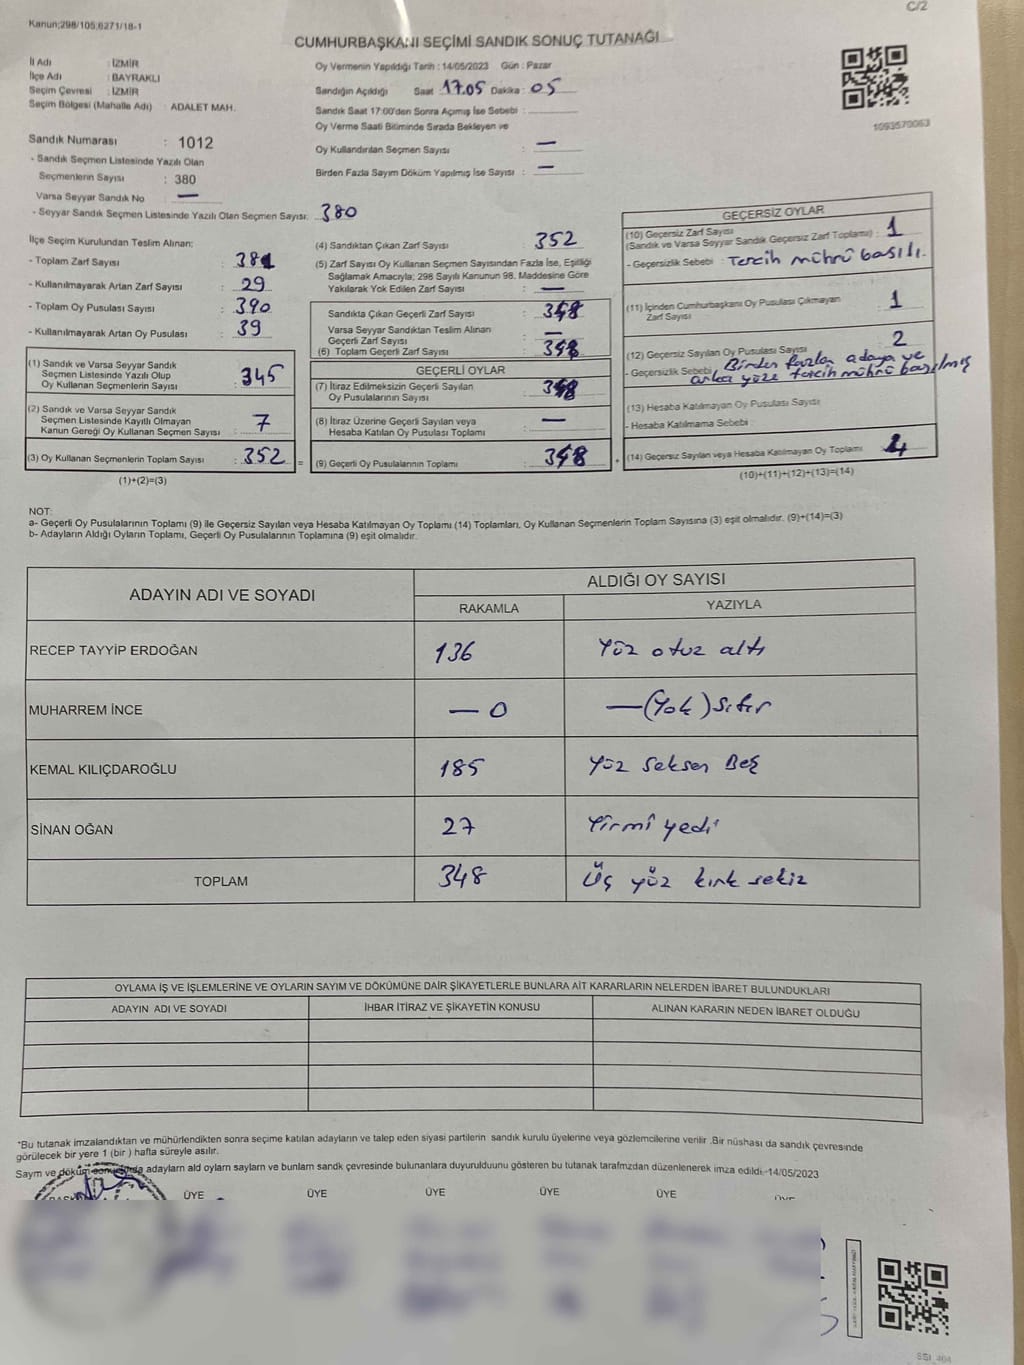 C/2
Kanun;298/105;6271/18-1
CUMHURBAŞKANI SEÇİMİ SANDIK SONUÇ TUTANAĞI
İl Adı : İZMİR
İlçe Adı : BAYRAKLI
Seçim Çevresi : İZMİR
Seçim Bölgesi (Mahalle Adı) : ADALET MAH.
Sandık Numarası : 1012
- Sandık Seçmen Listesinde Yazılı Olan
Seçmenlerin Sayısı : 380
Varsa Seyyar Sandık No : —
- Seyyar Sandık Seçmen Listesinde Yazılı Olan Seçmen Sayısı: 380
Oy Vermenin Yapıldığı Tarih : 14/05/2023 Gün : Pazar
Sandığın Açıldığı Saat 17.05 Dakika : 05
Sandık Saat 17:00'den Sonra Açımış İse Sebebi :
Oy Verme Saati Bitiminde Sırada Bekleyen ve
Oy Kullandırılan Seçmen Sayısı : —
Birden Fazla Sayım Döküm Yapılmış İse Sayısı : —
1093570063
İlçe Seçim Kurulundan Teslim Alınan:
- Toplam Zarf Sayısı : 381
- Kullanılmayarak Artan Zarf Sayısı : 29
- Toplam Oy Pusulası Sayısı : 390
- Kullanılmayarak Artan Oy Pusulası : 39
(1) Sandık ve Varsa Seyyar Sandık
Seçmen Listesinde Yazılı Olup
Oy Kullanan Seçmenlerin Sayısı : 345
(2) Sandık ve Varsa Seyyar Sandık
Seçmen Listesinde Kayıtlı Olmayan
Kanun Gereği Oy Kullanan Seçmen Sayısı : 7
(3) Oy Kullanan Seçmenlerin Toplam Sayısı : 352
(1)+(2)=(3)
(4) Sandıktan Çıkan Zarf Sayısı : 352
(5) Zarf Sayısı Oy Kullanan Seçmen Sayısından Fazla İse, Eşitliği
Sağlamak Amacıyla; 298 Sayılı Kanunun 98. Maddesine Göre
Yakılarak Yok Edilen Zarf Sayısı : —
Sandıkta Çıkan Geçerli Zarf Sayısı : 348
Varsa Seyyar Sandıktan Teslim Alınan
Geçerli Zarf Sayısı : —
(6) Toplam Geçerli Zarf Sayısı : 348
GEÇERLİ OYLAR
(7) İtiraz Edilmeksizin Geçerli Sayılan
Oy Pusulalarının Sayısı : 348
(8) İtiraz Üzerine Geçerli Sayılan veya
Hesaba Katılan Oy Pusulası Toplamı : —
= (9) Geçerli Oy Pusulalarının Toplamı : 348
GEÇERSİZ OYLAR
(10) Geçersiz Zarf Sayısı
(Sandık ve Varsa Seyyar Sandık Geçersiz Zarf Toplamı) : 1
- Geçersizlik Sebebi : Tercih mührü basılı.
(11) İçinden Cumhurbaşkanı Oy Pusulası Çıkmayan
Zarf Sayısı : 1
(12) Geçersiz Sayılan Oy Pusulası Sayısı : 2
- Geçersizlik Sebebi Birden fazla adaya ve
arka yüze tercih mührü basılmış
(13) Hesaba Katılmayan Oy Pusulası Sayısı
- Hesaba Katılmama Sebebi
+ (14) Geçersiz Sayılan veya Hesaba Katılmayan Oy Toplamı : 4
(10)+(11)+(12)+(13)=(14)
NOT:
a- Geçerli Oy Pusulalarının Toplamı (9) ile Geçersiz Sayılan veya Hesaba Katılmayan Oy Toplamı (14) Toplamları, Oy Kullanan Seçmenlerin Toplam Sayısına (3) eşit olmalıdır. (9)+(14)=(3)
b- Adayların Aldığı Oyların Toplamı, Geçerli Oy Pusulalarının Toplamına (9) eşit olmalıdır.
ADAYIN ADI VE SOYADI
ALDIĞI OY SAYISI
RAKAMLA YAZIYLA
RECEP TAYYİP ERDOĞAN 136 Yüz otuz altı
MUHARREM İNCE — 0 —(Yok) Sıfır
KEMAL KILIÇDAROĞLU 185 Yüz Seksen Beş
SİNAN OĞAN 27 Yirmi yedi
TOPLAM 348 Üç yüz kırk sekiz
OYLAMA İŞ VE İŞLEMLERİNE VE OYLARIN SAYIM VE DÖKÜMÜNE DAİR ŞİKAYETLERLE BUNLARA AİT KARARLARIN NELERDEN İBARET BULUNDUKLARI
ADAYIN ADI VE SOYADI İHBAR İTİRAZ VE ŞİKAYETİN KONUSU ALINAN KARARIN NEDEN İBARET OLDUĞU
*Bu tutanak imzalandıktan ve mühürlendikten sonra seçime katılan adayların ve talep eden siyasi partilerin sandık kurulu üyelerine veya gözlemcilerine verilir .Bir nüshası da sandık çevresinde
görülecek bir yere 1 (bir ) hafta süreyle asılır.
Sayım ve döküm sonucunda adayların ald oyların sayların ve bunlarn sandk çevresinde bulunanlara duyurulduunu gösteren bu tutanak tarafmzdan düzenlenerek imza edildi.-14/05/2023
ÜYE ÜYE ÜYE ÜYE ÜYE